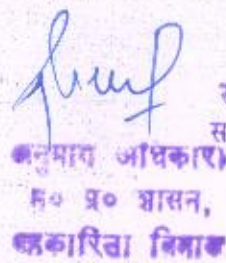 स
स
अनुभाग अधिकारी
म० प्र० शासन,
सहकारिता विभाग